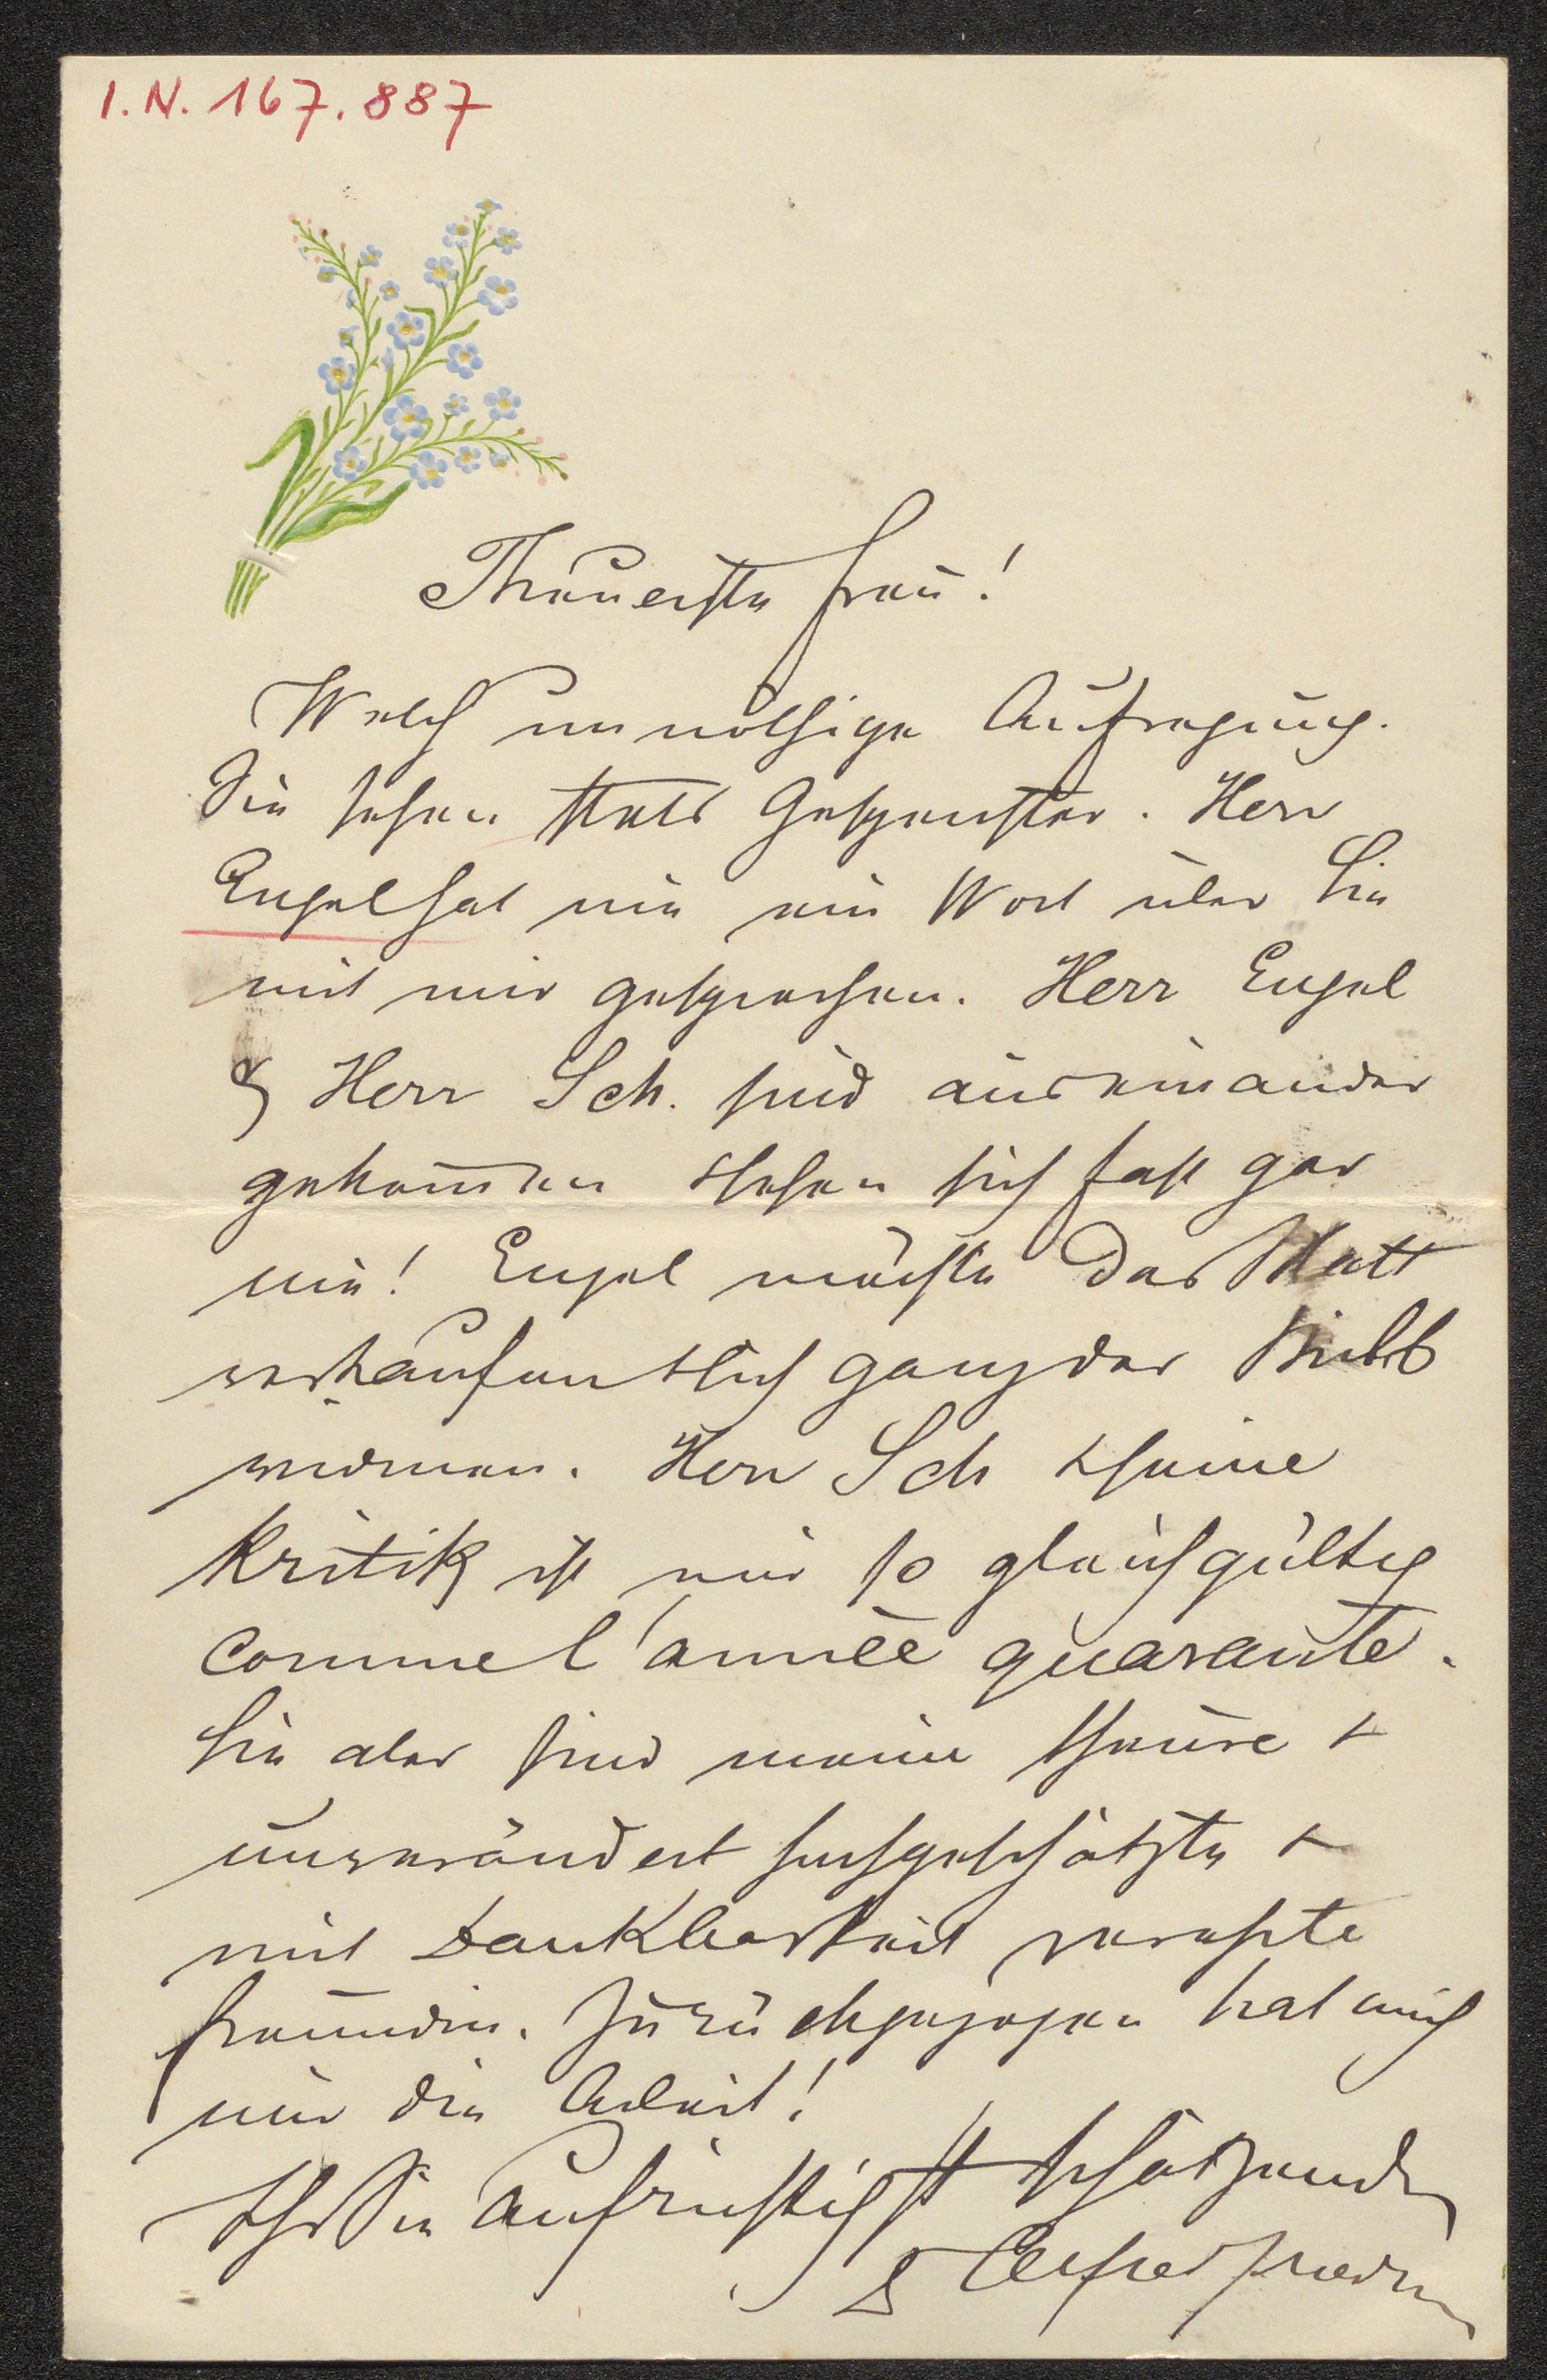 I.N. 167.887
Theuerste Frau!
Welch unnöthige Aufregung.
Sie sehen stets Gespenster. Herr
Engel hat nie ein Wort über Sie
mit mir gesprochen. Herr Engel
& Herr Sch. sind auseinander
gekommen sehen sich fast gar
nie! Engel möchte das Blatt
verkaufen & sich ganz der
widmen. Herr Sch & seine
Kritik ist mir so gleichgültig
comme l'année quarante.
Sie aber sind meine theure &
unverändert hochgeschätzte &
mit Dankbarkeit verehrte
Freundin. Zurückgezogen hat mich
nur die Arbeit!
Ihr Sie aufrichtigst schätzender
Alfred Friedm